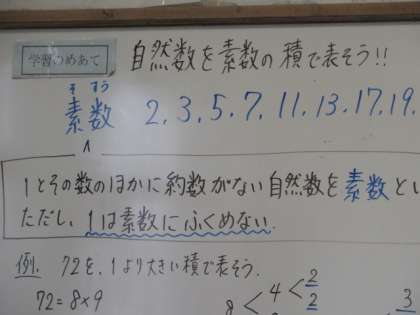 学習のめあて 自然数を素数の積で表そう!!
そ すう
素数 2, 3, 5, 7, 11, 13, 17, 19,
1とその数のほかに約数がない自然数を素数とい
ただし、1は素数にふくめない.
例. 72を、1より大きい積で表そう.
72=8×9
8<4<2
2
3